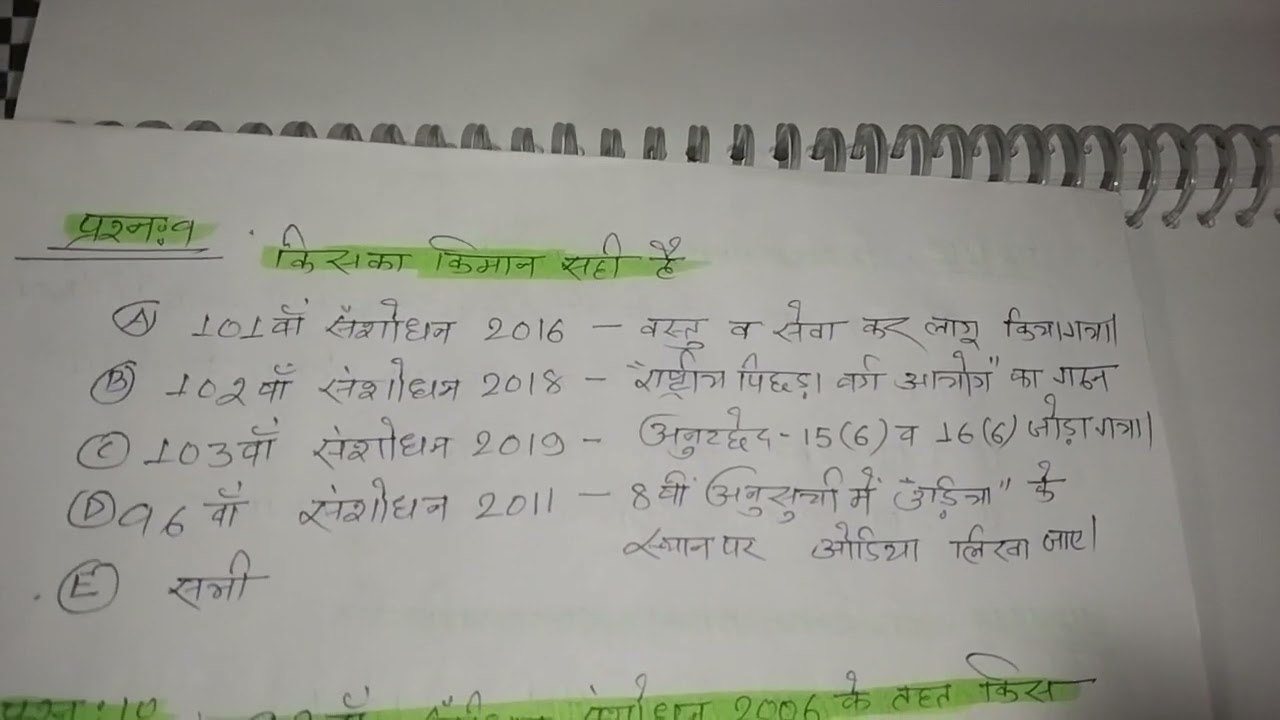 प्रश्नः९
किसका किमान सही है
(A) 101वाँ संशोधन 2016 – वस्तु व सेवा कर लागू किया गया।
(B) 102वाँ संशोधन 2018 – "राष्ट्रीय पिछड़ा वर्ग आयोग" का गठन
(C) 103वाँ संशोधन 2019 – अनुच्छेद - 15(6) व 16(6) जोड़ा गया।
(D) 96वाँ संशोधन 2011 – 8वीं अनुसुची में "उड़िया" के
स्थान पर ओडिया लिखा जाए।
(E) सभी
प्रश्न:10 संशोधन 2006 के तहत किस